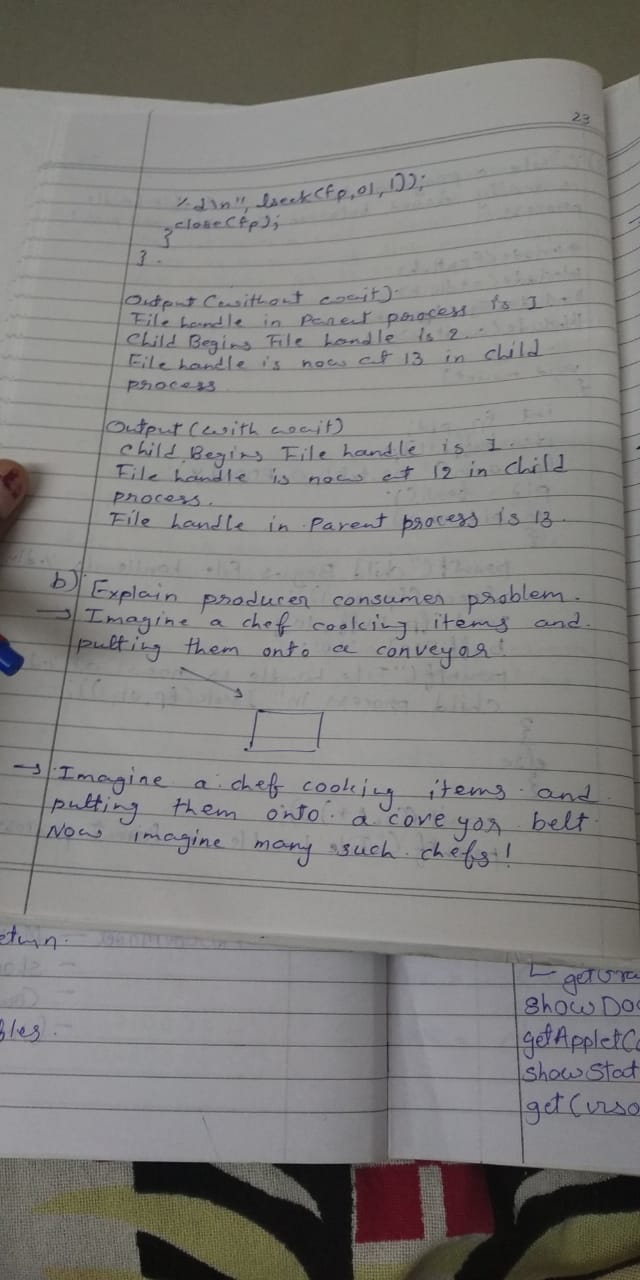 23
%d\n", lseek(fp,0l,1));
close(fp);
}
}.
Output (without wait).
File handle in Parent process is 1
Child Begins File handle is 2.
File handle is now at 13 in child
process
Output (with wait)
Child Begins File handle is 1.
File handle is now at 12 in child
process.
File handle in Parent process is 13.
b) Explain producer consumer problem.
→ Imagine a chef cooking items and
putting them onto a conveyor.
→ Imagine a chef cooking items and
putting them onto a coveyor belt
Now imagine many such chefs!
showDoc
getAppletCo
showStat
getCurso